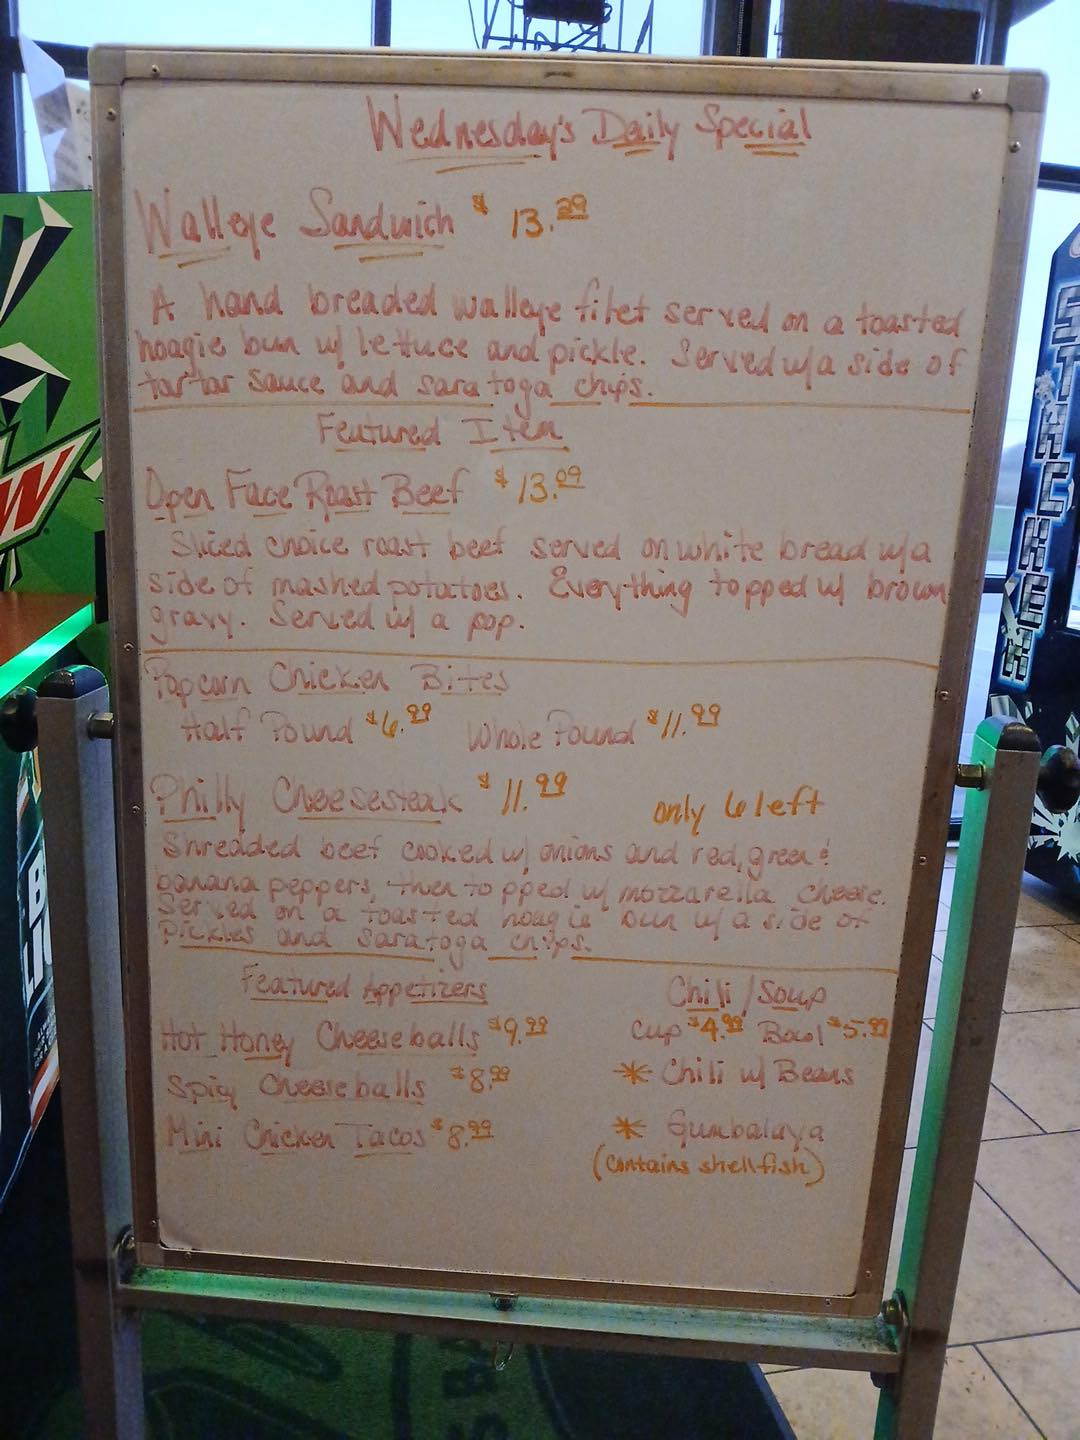 Wednesday's Daily Special
Walleye Sandwich $ 13.29
A hand breaded walleye filet served on a toasted
hoagie bun w/ lettuce and pickle. Served w/a side of
tartar sauce and saratoga chips.
Featured Item
Open Face Roast Beef $13.09
Sliced choice roast beef served on white bread w/a
side of mashed potatoes. Everything topped w/ brown
gravy. Served w/ a pop.
Popcorn Chicken Bites
Half Pound $6.99 Whole Pound $11.99
Philly Cheesesteak $11.99 only 6 left
Shredded beef cooked w/ onions and red, green &
banana peppers, then topped w/ mozzarella cheese.
Served on a toasted hoagie bun w/ a side of
pickles and saratoga chips.
Featured Appetizers
Hot Honey Cheeseballs $9.99
Spicy Cheeseballs $8.99
Mini Chicken Tacos $8.99
Chili/Soup
Cup $4.99 Bowl $5.99
* Chili w/ Beans
* Gumbalaya
(contains shellfish)
STACKER
W